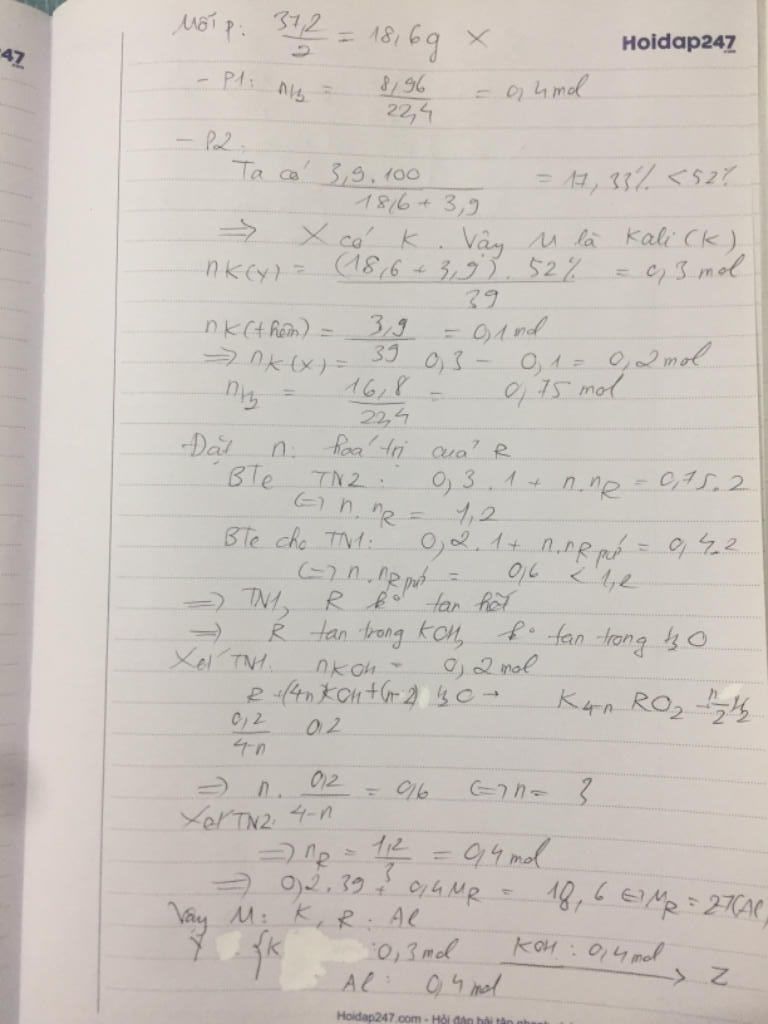 47
Hoidap247
.com
Mỗi p: 37,2/2 = 18,6g X
- P1: nH2 = 8,96/22,4 = 0,4mol
- P2:
Ta có 3,9.100/18,6+3,9 = 17,33% < 52%
=> X có K. Vậy M là Kali(K)
nK(Y) = (18,6 + 3,9). 52%/39 = 0,3 mol
nK(thêm) = 3,9/39 = 0,1mol
=> nK(X) = 0,3 - 0,1 = 0,2mol
nH2 = 16,8/22,4 = 0,75 mol
Đặt n: hoá trị của R
BTe TN2: 0,3.1 + n.nR = 0,75.2
<=> n.nR = 1,2
BTe cho TN1: 0,2.1 + n.nR pứ = 0,4.2
<=> n.nR pứ = 0,6 < 1,2
=> TN1, R ko tan hết
=> R tan trong KOH, ko tan trong H2O
Xét TN1. nKOH = 0,2mol
R + (4-n)KOH + (n-2) H2O → K4-n RO2 + n/2 H2
0,2/4-n 0,2
=> n. 0,2/4-n = 0,6 <=> n = 3
Xét TN2:
=> nR = 1,2/3 = 0,4mol
=> 0,2.39 + 0,4MR = 18,6 <=> MR = 27(Al)
Vậy M: K, R: Al
Y { K : 0,3mol KOH : 0,4mol → Z
Al: 0,4mol
Hoidap247.com - Hỏi đáp bài tập